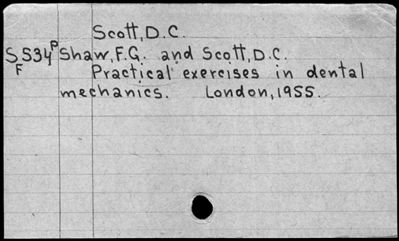 Scott, D.C.
S534P Shaw, F.G. and Scott, D.C.
F Practical exercises in dental
mechanics. London, 1955.